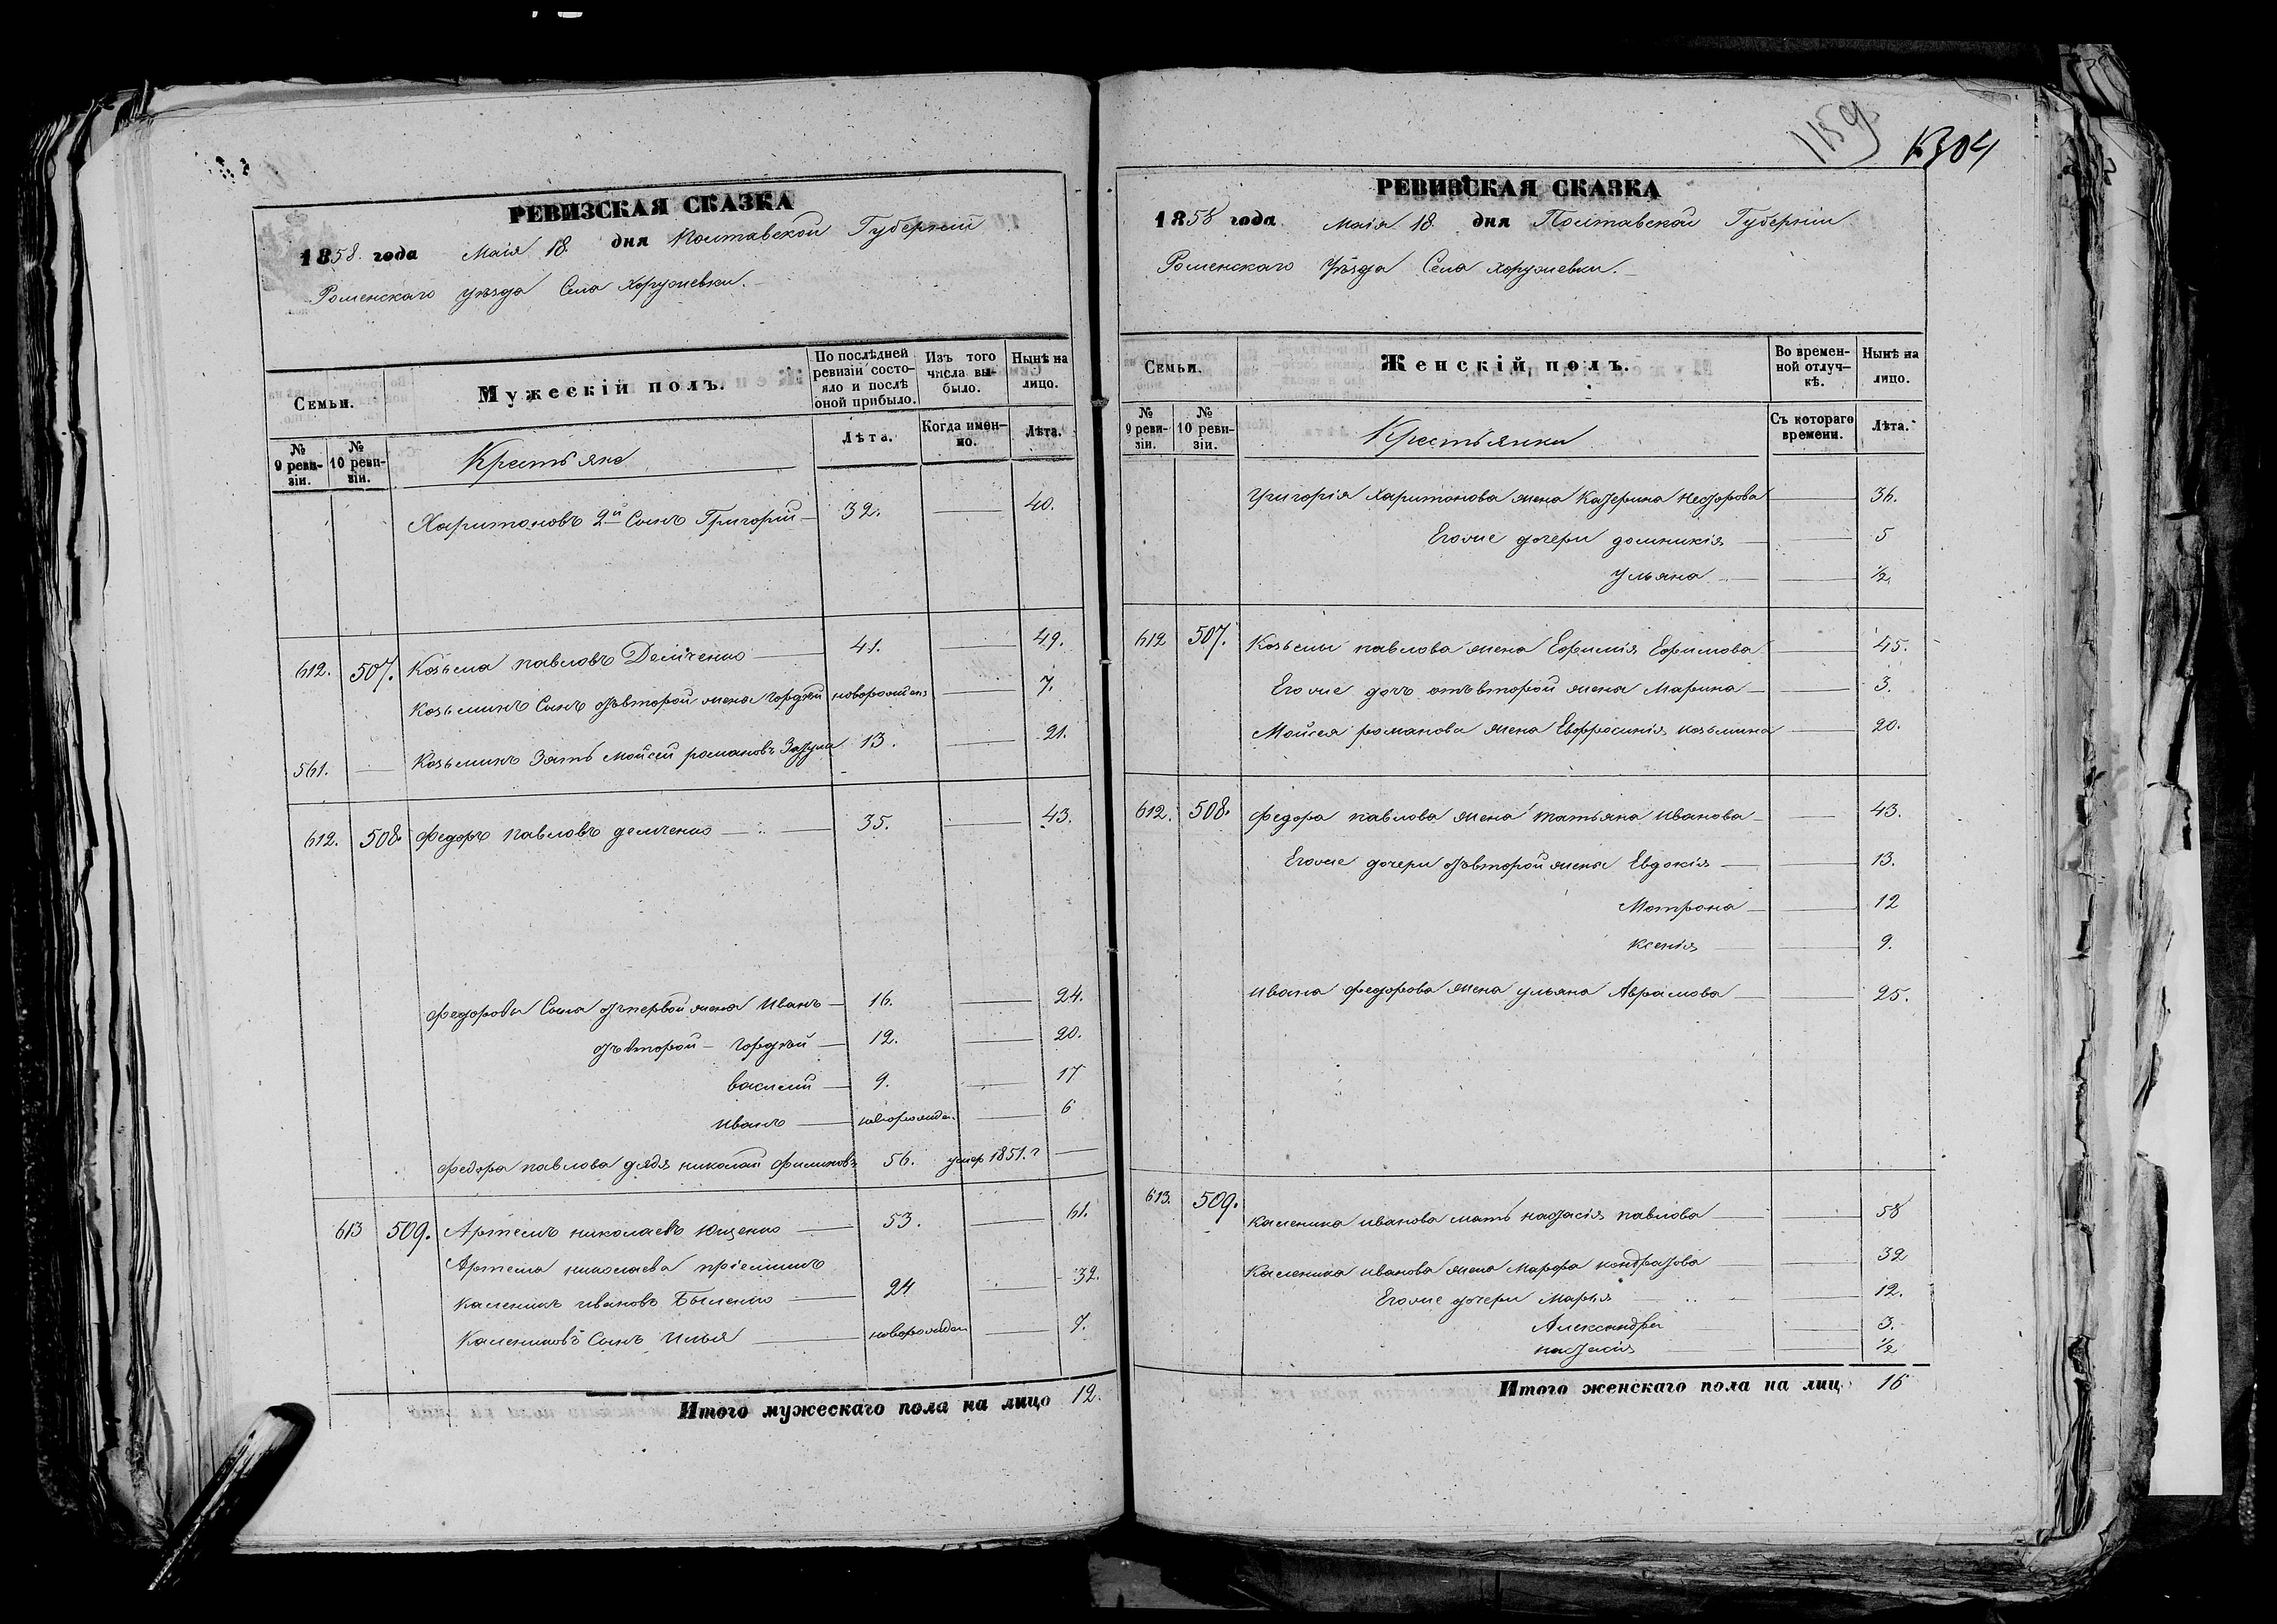 1159
1304
РЕВИЗСКАЯ СКАЗКА
1858 года Маія 18 дня Полтавской Губерніи
Роменскаго уѣзда Села Хоружевки.
Семьи.
Мужескій полъ.
По послѣдней ревизіи состояло и послѣ оной прибыло.
Изъ того числа выбыло.
Нынѣ на лицо.
№ 9 ревизіи.
№ 10 ревизіи.
Крестьяне
Лѣта.
Когда именно.
Лѣта.
Харитоновъ 2й Сынъ Григорій 32. 40.
612. 507. Козьма павловъ Демченко 41. 49.
Козьминъ Сынъ отъвторой жены Гордѣй новорожден 7.
561. Козьминъ Зять Мойсей романовъ 13. 21.
612. 508. Федоръ павловъ демченко 35. 43.
Федоровы Сына отъпервой жены Иванъ 16. 24.
отъвторой Гордѣй 12. 20.
василій 9. 17
иванъ новорожден. 6
Федора павлова дядя николай Филиповъ 56. умер 1851. г
613 509. Артемъ николаевъ Ющенко 53. 61.
Артема николаева пріемишъ
каленикъ ивановъ Быленко 24 32.
Калениковъ Сынъ Илья новорожден 7.
Итого мужескаго пола на лицо 12.
РЕВИЗСКАЯ СКАЗКА
1858 года Маія 18. дня Полтавской Губерніи
Роменскаго Уѣзда Села Хоружевки.
Семьи.
Женскій полъ.
Во временной отлучкѣ.
Нынѣ на лицо.
№ 9 ревизіи.
№ 10 ревизіи.
Крестьянки
Съ котораго времени.
Лѣта.
Григорія Харитонова жена Катерина Федорова 36.
Егоже дочери домникія 5
Ульяна 1/2
612 507. Козьмы павлова жена Ефимія Ефимова 45.
Егоже дочь отъвторой жены Марина 3.
Мойсея романова жена Евфросинія козьмина 20.
612. 508. Федора павлова жена татьяна иванова 43.
Егоже дочери отъвторой жены Евдокія 13.
Матрона 12
ксенія 9.
ивана федорова жена ульяна Аврамова 25.
613. 509. каленика иванова мать настасія павлова 58
Каленика иванова жена Марфа кондратова 32
Егоже дочери Марья 12.
Александра 3.
настасія 1/2
Итого женскаго пола на лиц 16